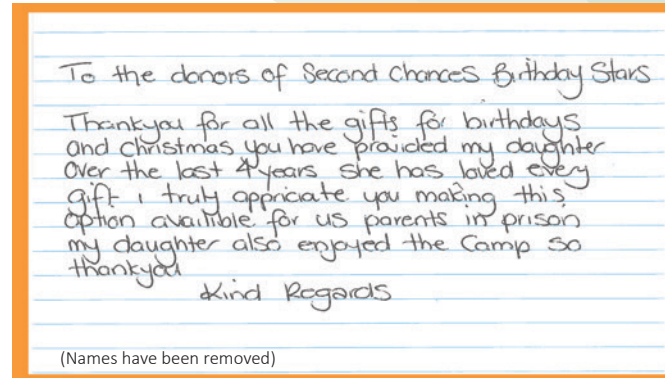 To the donors of Second Chances Birthday Stars
Thankyou for all the gifts for birthdays
and christmas you have provided my daughter
over the last 4 years she has loved every
gift i truly appriciate you making this
option availible for us parents in prison
my daughter also enjoyed the Camp so
thankyou
Kind Regards
(Names have been removed)